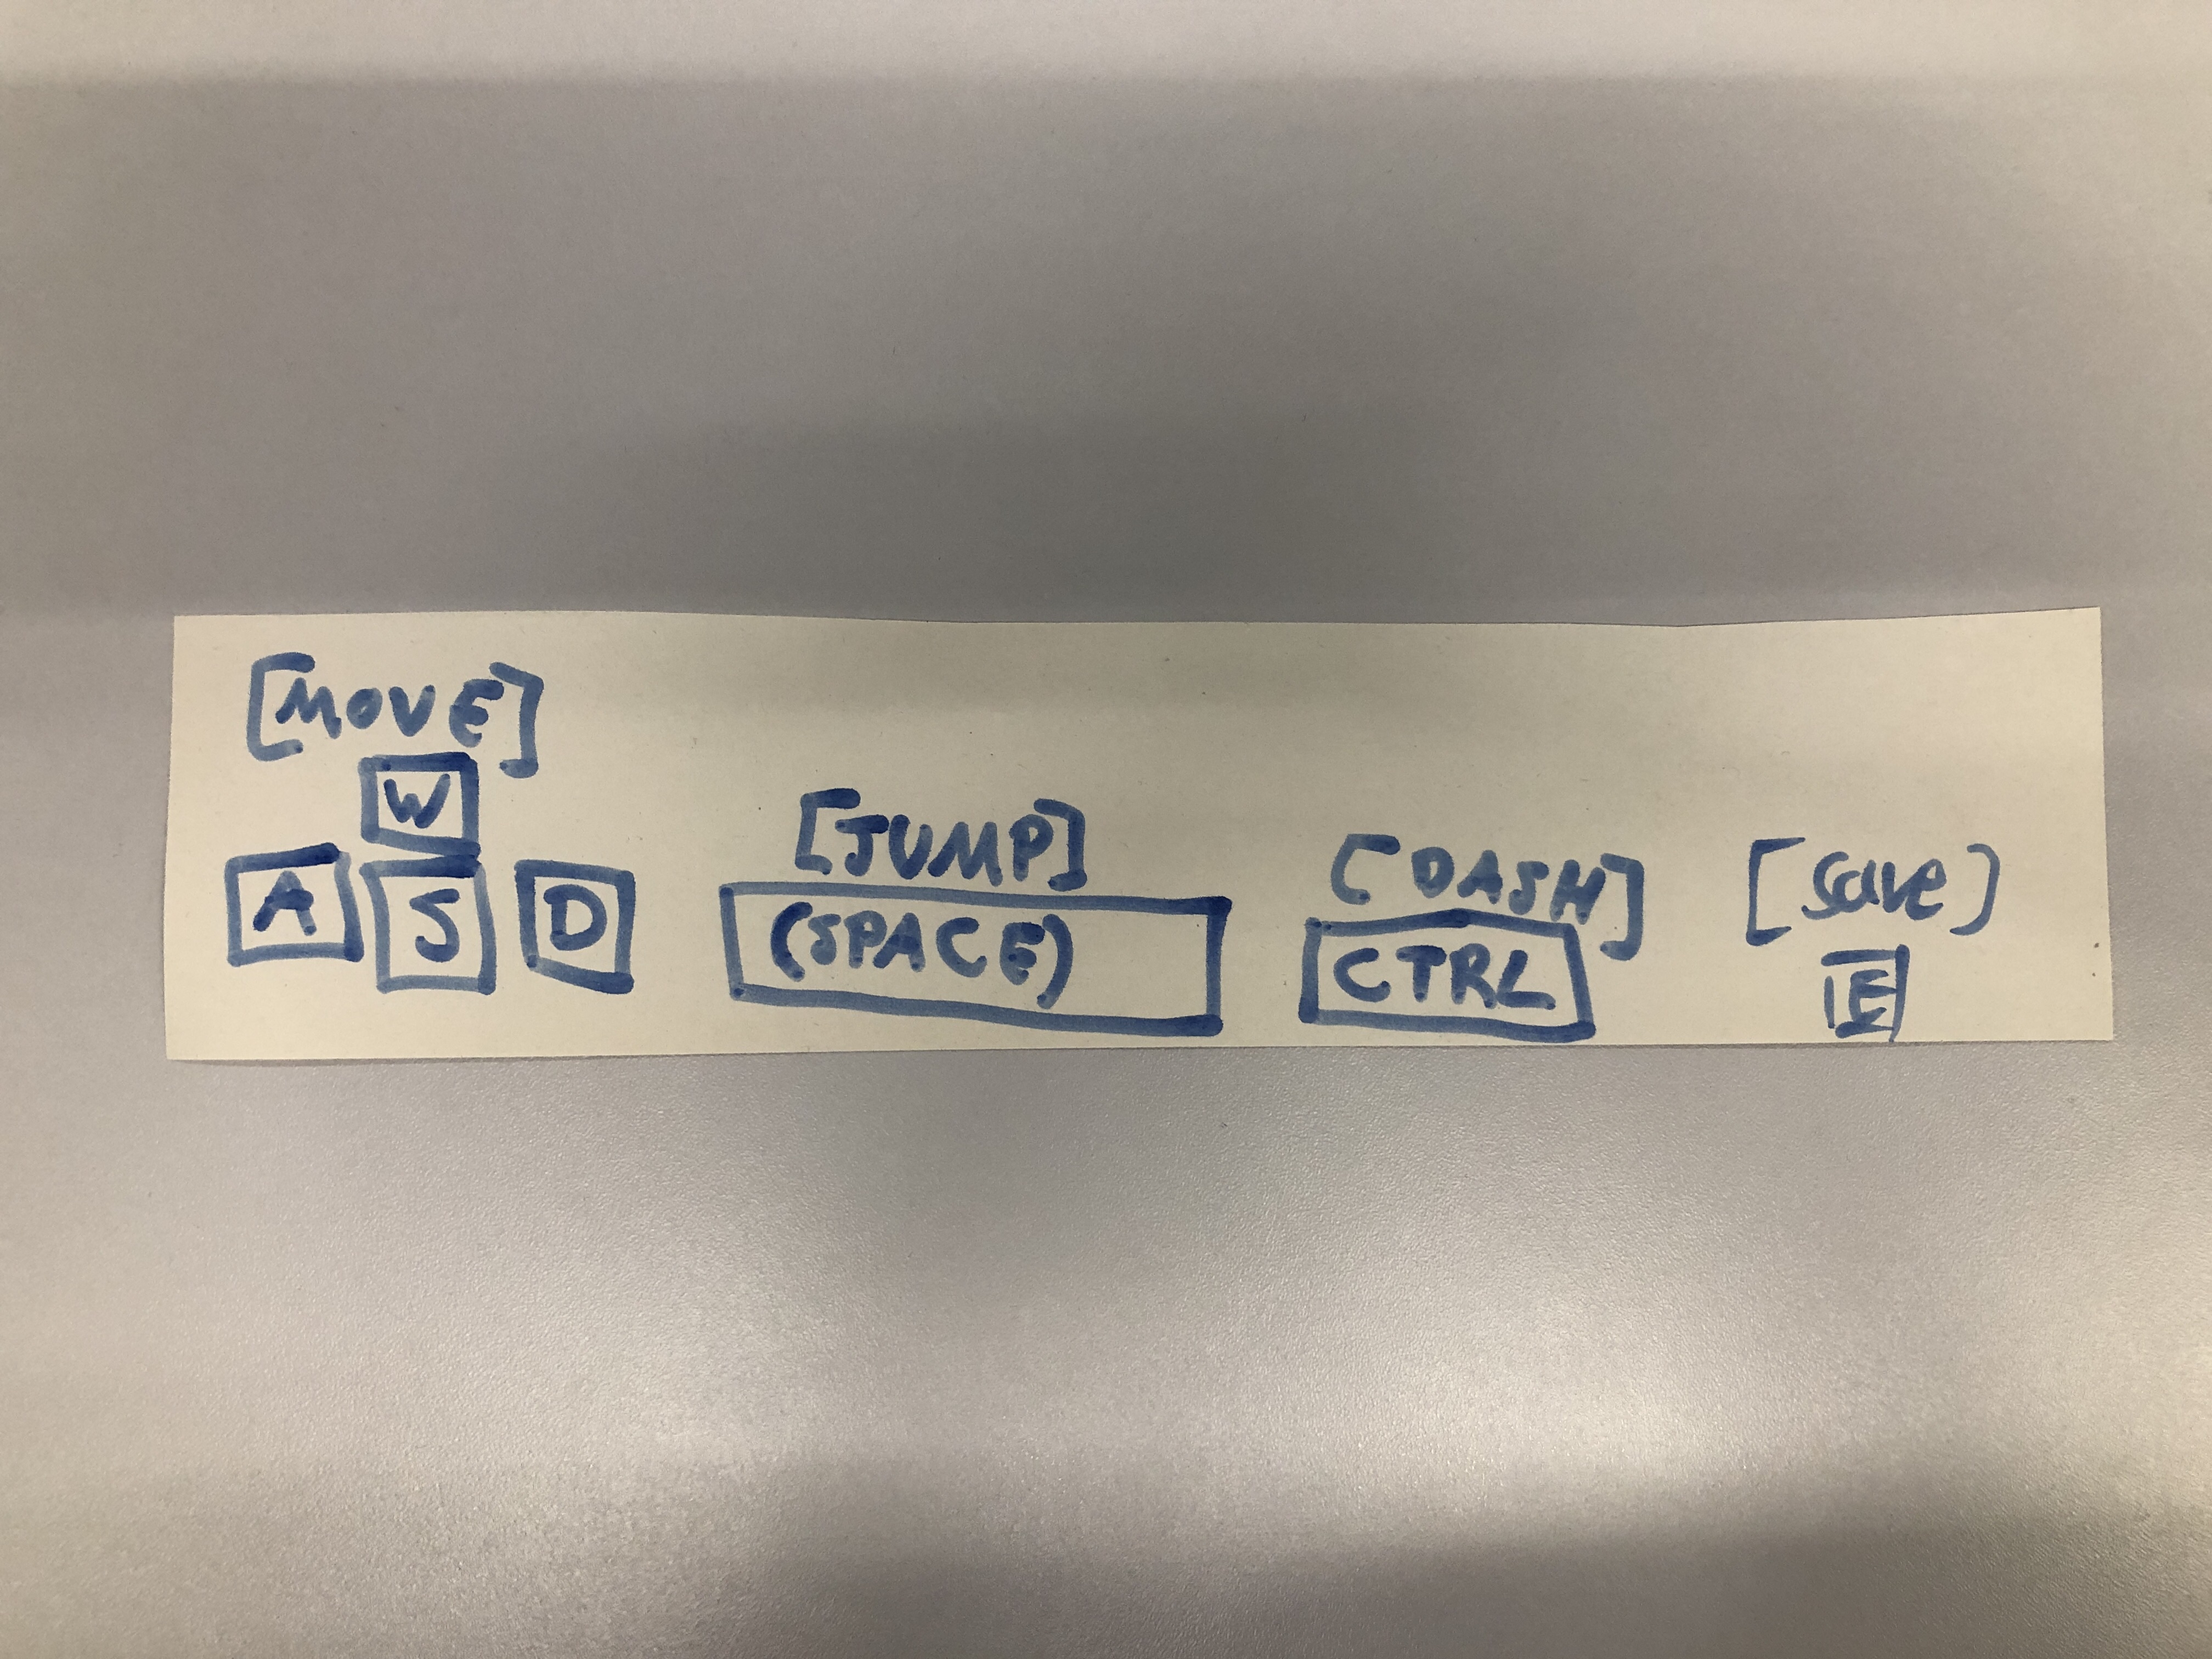 [MOVE]
W
A S D
[JUMP]
(SPACE)
[DASH]
CTRL
[save]
E